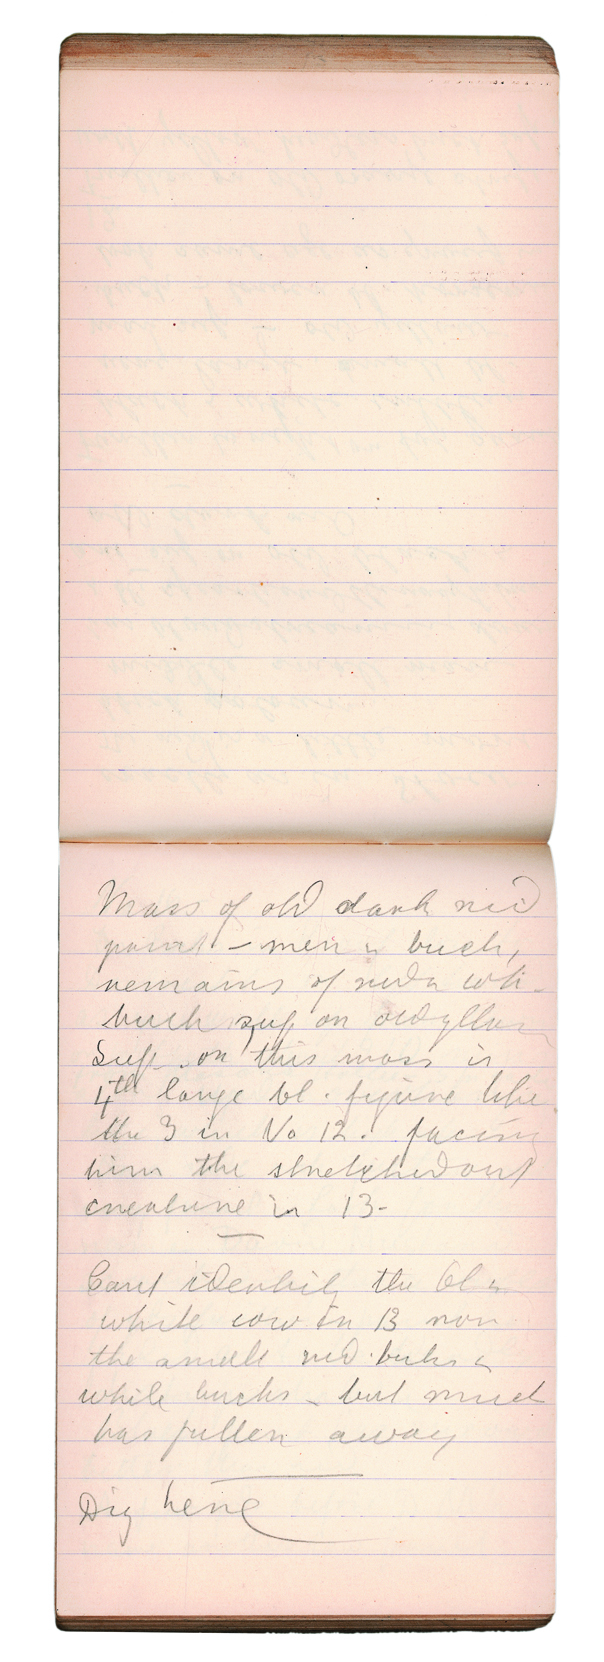 Mass of old dark red
paint - men & buck,
remains of red & wh-
buck sup on old yellow
Sup. on this mass is
4th large bl. figure like
the 3 in No 12. facing
him the stretched out
creature in 13-
Cant identify the bl &
white cow in 13 nor
the small red bucks &
white bucks - but much
has fallen away
Dig here